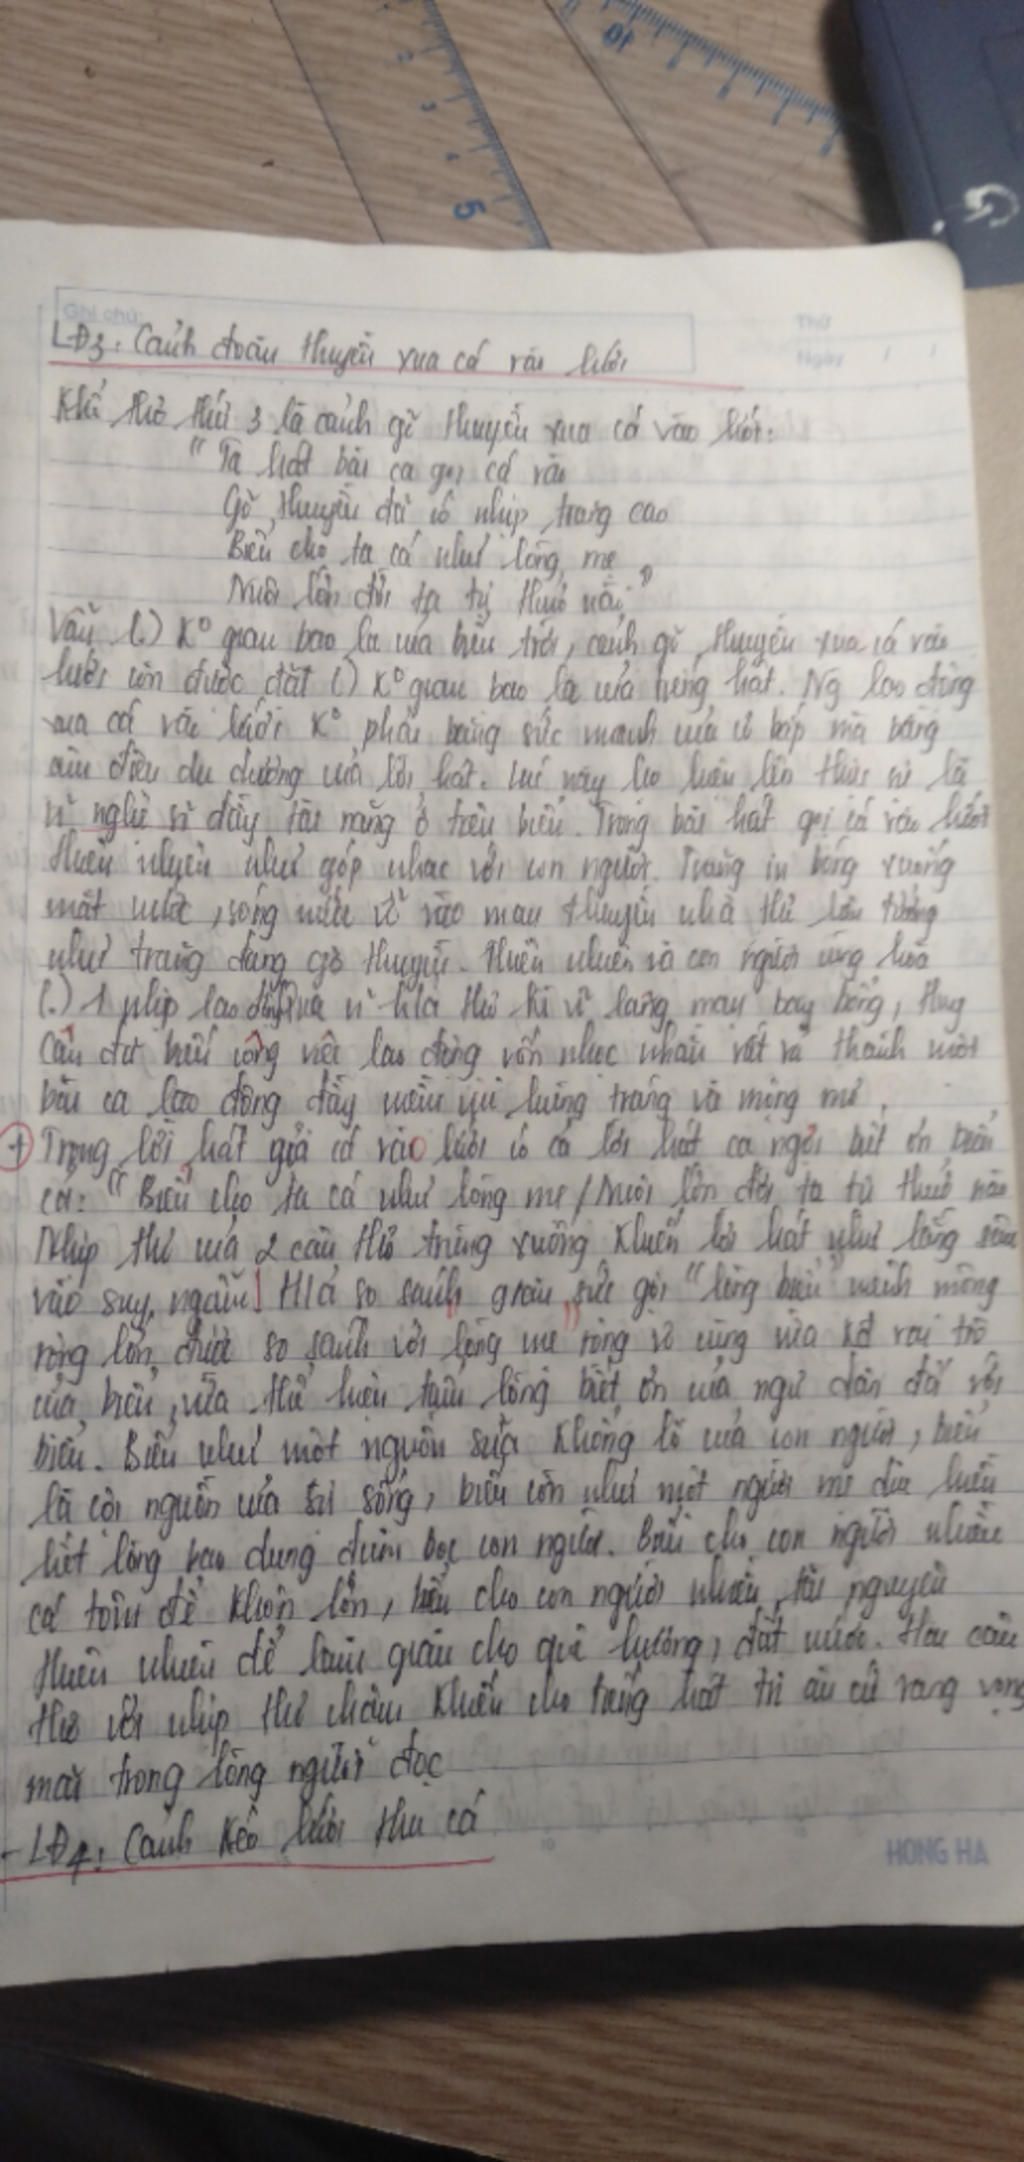 Ghi chú:
Thứ
Ngày / /
LĐ3: Cảnh đoàn thuyền xua cá vào lưới
Khổ thơ thứ 3 là cảnh gõ thuyền xua cá vào lưới:
"Ta hát bài ca gọi cá vào
Gõ thuyền đã có nhịp trăng cao
Biển cho ta cá như lòng mẹ
Nuôi lớn đời ta tự thuở nào"
Vẫn (.) K° gian bao la của biển trời, cảnh gõ thuyền xua cá vào
lưới còn được đặt (.) K° gian bao la của tiếng hát. Ng lao động
xua cá vào lưới K° phải bằng sức mạnh của cơ bắp mà bằng
âm điệu du dương của lời hát. Lúc này họ hiện lên thực sự là
nghệ sĩ đầy tài năng ở trên biển. Trong bài hát gọi cá vào lưới
thiên nhiên như góp nhạc với con người. Trăng in bóng xuống
mặt nước, sóng nước vỗ vào mạn thuyền nhà thơ liên tưởng
như trăng đang gõ thuyền. Thiên nhiên và con người cùng hòa
(.) 1 nhịp lao động lãng mạn bay bổng,
câu thơ biến công việc lao động vốn nhọc nhằn vất vả thành một
bài ca lao động đầy niềm vui trăng và mộng mơ.
+ Trong lời hát gọi cá vào lưới có cả lời hát ca ngợi biết ơn biển
cả: "Biển cho ta cá như lòng mẹ / Nuôi lớn đời ta tự thuở nào
Nhịp thơ của 2 câu thơ trùng xuống khiến lời hát như lắng sâu
vào suy ngẫm! H/ả so sánh giàu sức gợi "lòng biển" mênh mông
rộng lớn được so sánh với lòng mẹ rộng vô cùng vừa vai trò
của biển, vừa thể hiện tấm lòng biết ơn của ngư dân đối với
biển. Biển như một nguồn sữa khổng lồ của con người, biển
là cội nguồn của sự sống, biển còn như một người mẹ dịu hiền
hết lòng bao dung đùm bọc con người. Biển cho con người nhiều
cá tôm để khôn lớn, biển cho con người nhiều tài nguyên
thiên nhiên để làm giàu cho quê hương, đất nước. Hai câu
thơ với nhịp thơ chậm khiến cho tiếng hát tri ân cứ vang vọng
mãi trong lòng người đọc
- LĐ4: Cảnh kéo lưới thu cá
HONG HA